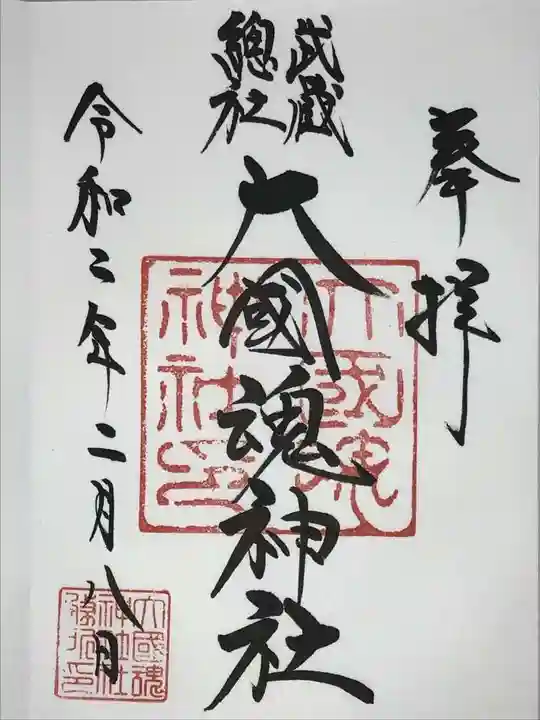 奉拝
武蔵
總社
大國魂神社
大國魂
神社印
令和二年二月八日
大國魂
神社